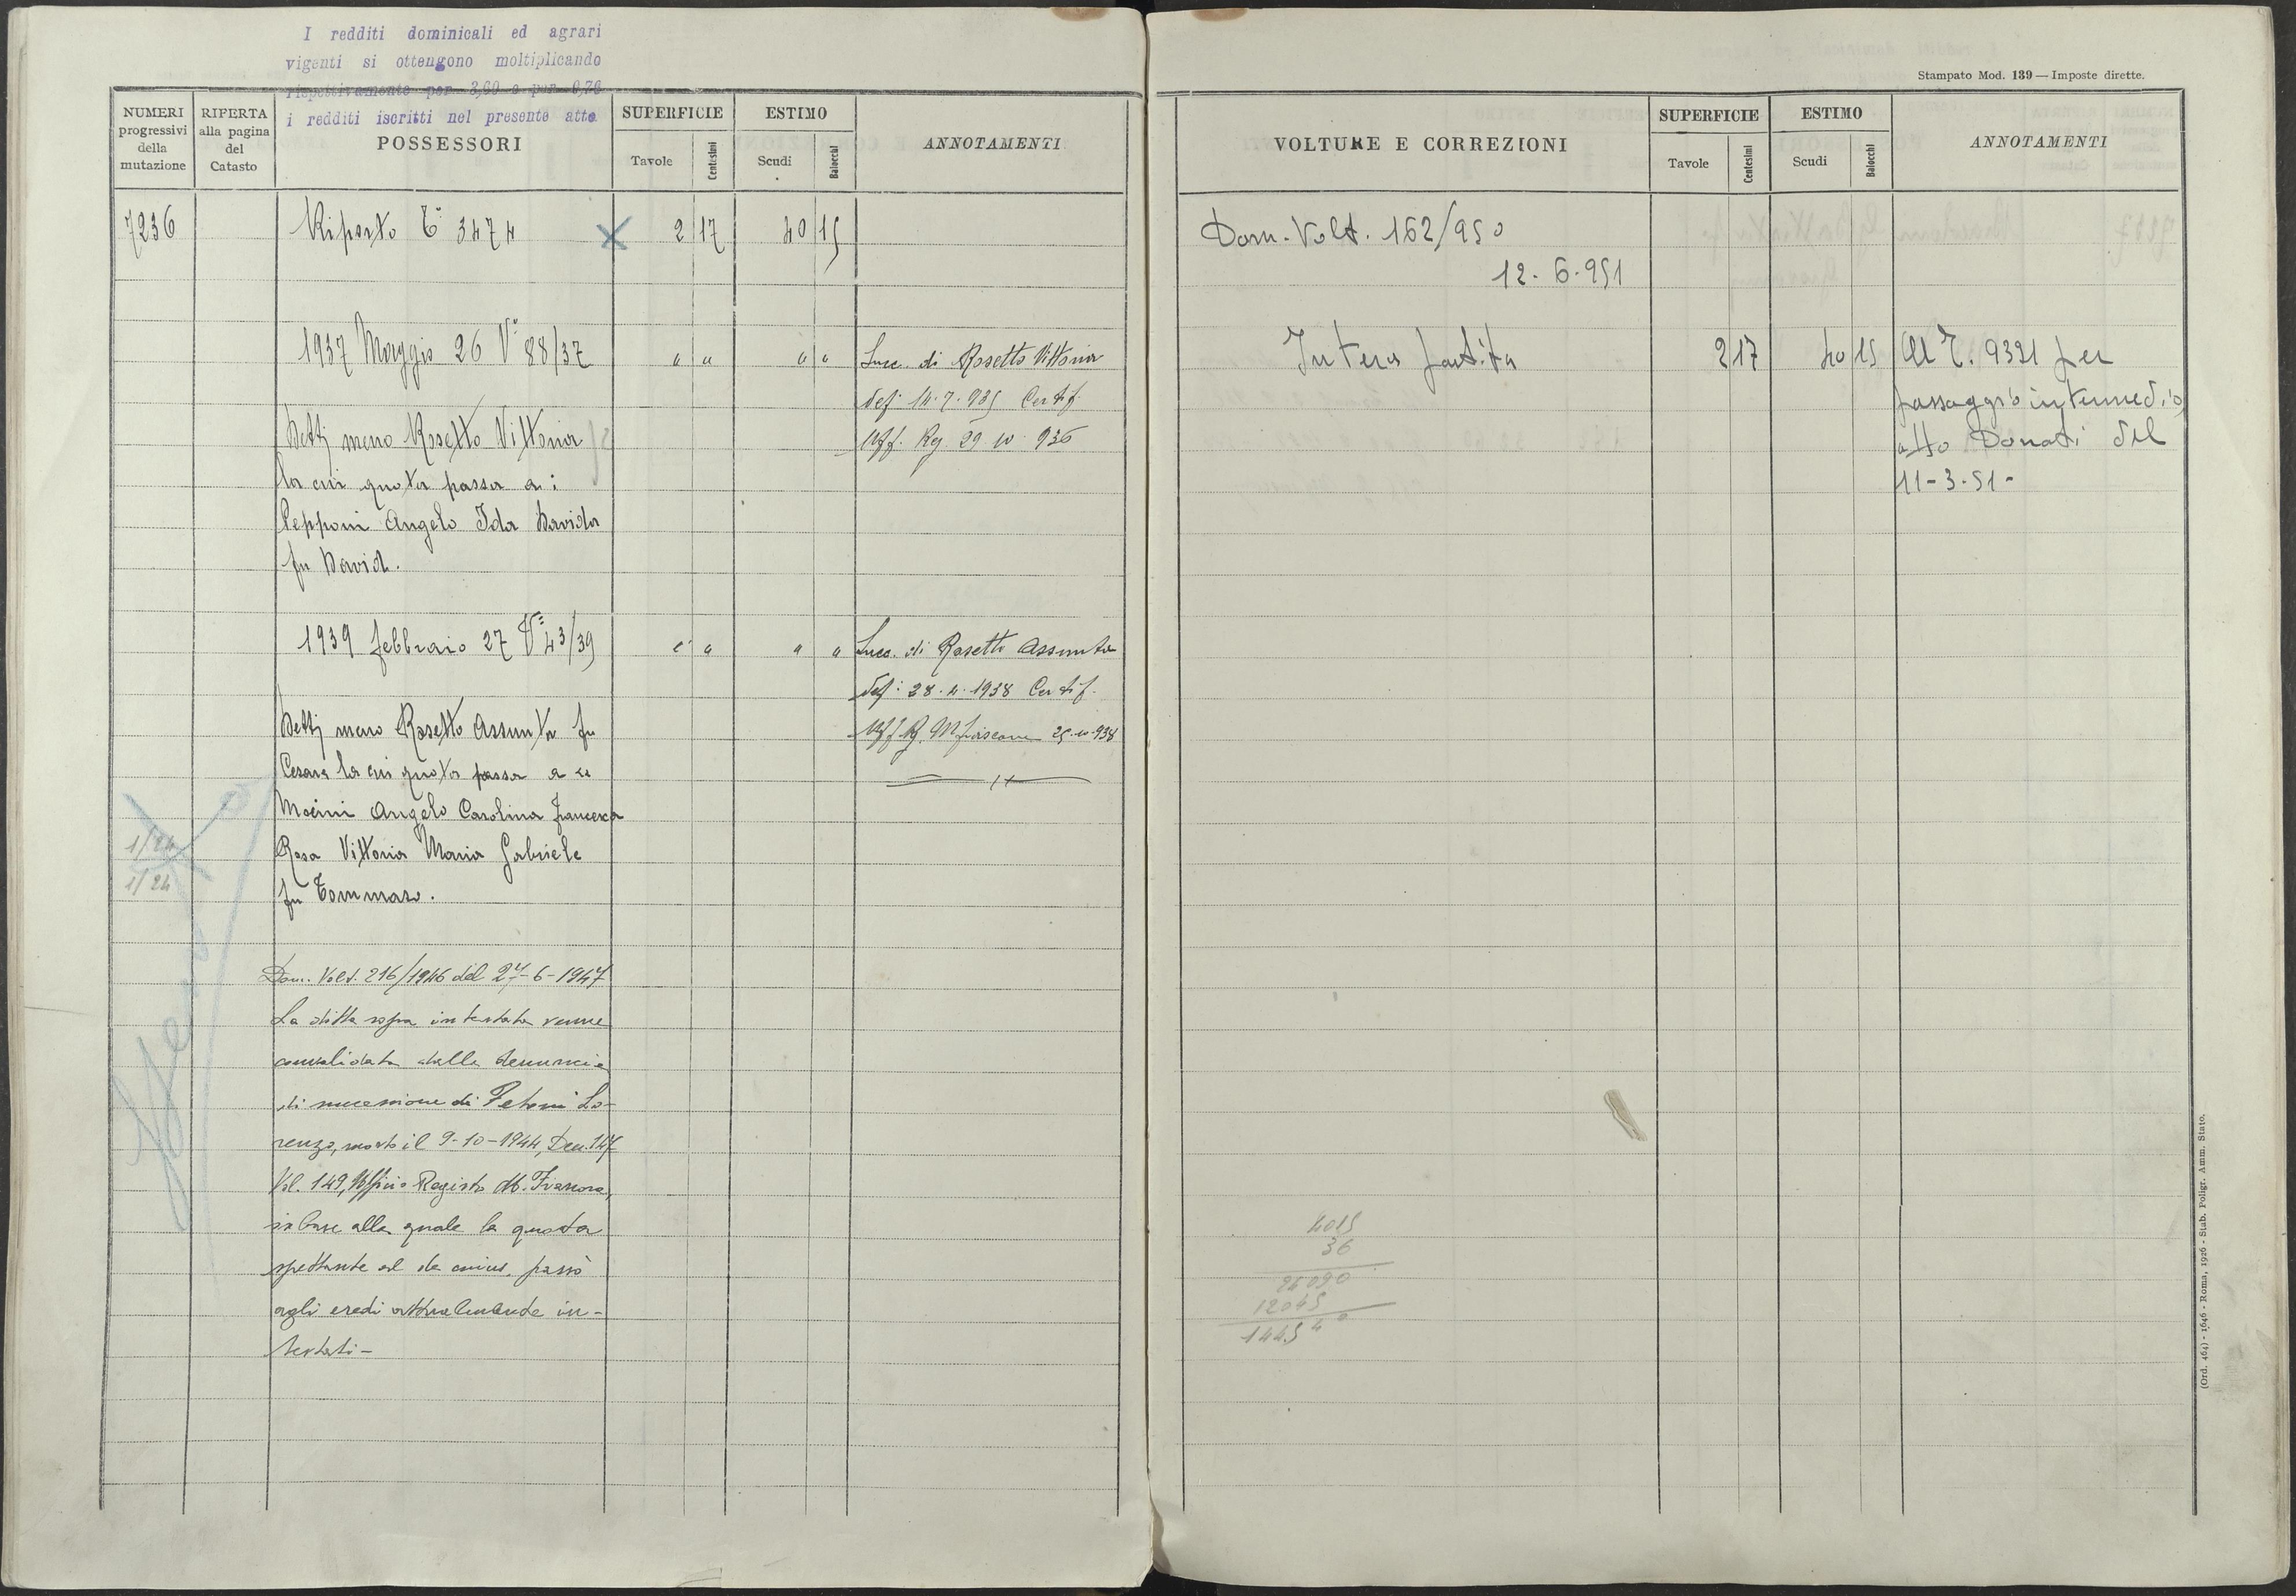 I redditi dominicali ed agrari
vigenti si ottengono moltiplicando
rispettivamente per 3,60 e per 0,76
i redditi iscritti nel presente atto
NUMERI progressivi della mutazione
RIPERTA alla pagina del Catasto
POSSESSORI
SUPERFICIE
Tavole
Centesimi
ESTIMO
Scudi
Baiocchi
ANNOTAMENTI
7236 Riporto T° 3474 X 2 17 40 15
1937 Maggio 26 V° 88/37 " " " " Succ. di Rosetto Vittoria
def. 14.7.935 Certif.
Uff. Rg. 29.10.936
Detti meno Rosetto Vittoria
la cui quota passa a:
Pepponi Angelo Ida Davida
fu David.
1939 febbraio 27 V° 43/39 " " " " Succ. di Rosetto Assunta
def: 28.4.1938 Certif.
Uff. Rg. Mfiascone 25.10.938
Detti meno Rosetto Assunta fu
Cesare la cui quota passa a
Mocini Angelo Carolina Francesca
Rosa Vittoria Maria Gabriele
fu Tommaso.
1/24
1/24
Dom. Volt. 216/1946 del 27-6-1947
La ditta sopra intestata venne
convalidata dalla denuncia
di successione di Petroni Lo-
renzo, morto il 9-10-1944, Den. 147
Vol. 149, Ufficio Registo M. Fiascone,
in base alla quale la quota
spettante al de cuius, passò
agli eredi attualmente in-
testati-
Stampato Mod. 139 — Imposte dirette.
VOLTURE E CORREZIONI
SUPERFICIE
Tavole
Centesimi
ESTIMO
Scudi
Baiocchi
ANNOTAMENTI
Dom. Volt. 162/950
12.6.951
Intera partita 2 17 40 15 Al T. 9321 per
passaggio intermedio
atto Donati del
11-3-51-
4015
36
24090
12045
144540
(Ord. 464) - 1646 - Roma, 1926 - Stab. Poligr. Amm. Stato.